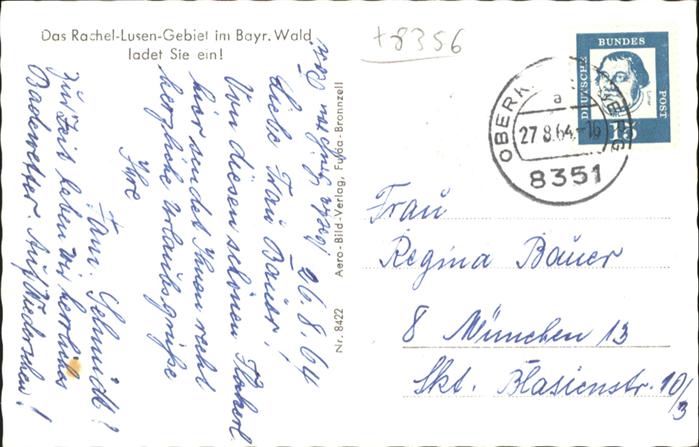 Das Rachel-Lusen-Gebiet im Bayr. Wald
ladet Sie ein!
+8356
26.8.64
Liebe Frau Bauer!
Von diesen schönen
hier sendet Ihnen recht
herzliche Urlaubsgrüße
Ihre
Fam. Schmidt
Zur Zeit haben wir herrliches
Badewetter. Auf Wiedersehen!
Nr. 8422 Aero-Bild-Verlag, Fulda-Bronnzell
DEUTSCHE
BUNDES
POST
Luther
15
a
27.8.64.-16
8351
Frau
Regina Bauer
8 München 13
Skt. Blasienstr. 10/3